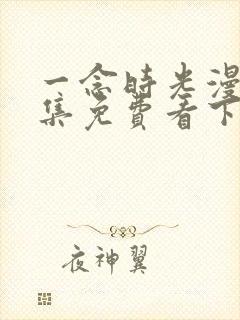 一念时光漫
集免费看下
夜神翼